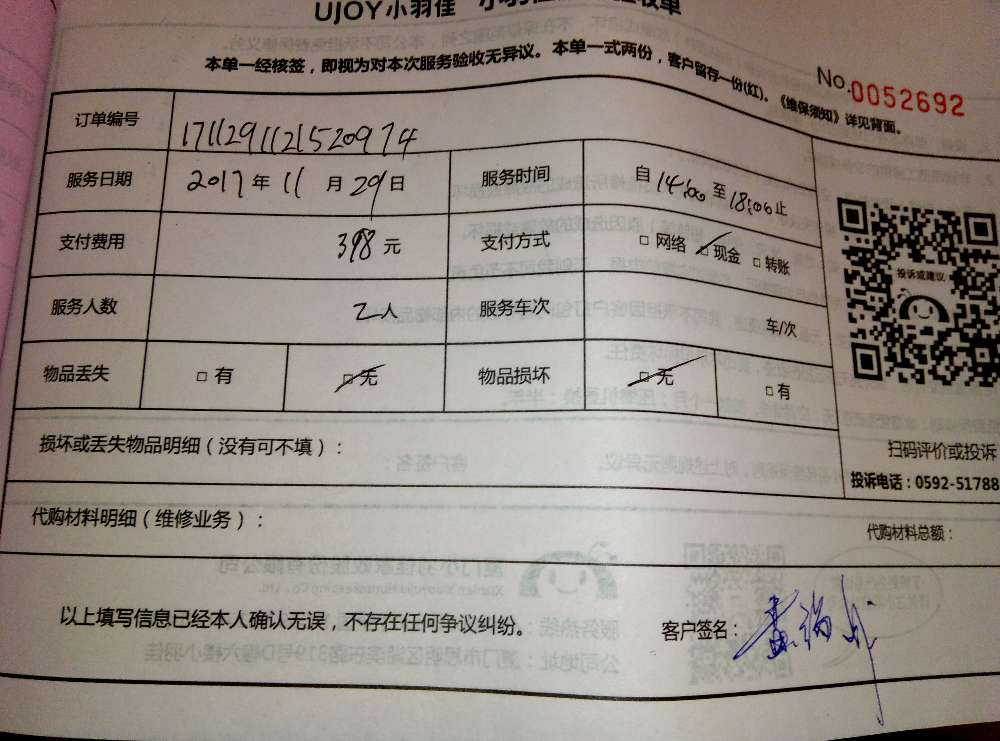 UJOY小羽佳
本单一经核签，即视为对本次服务验收无异议。本单一式两份，客户留存一份(红)。《维保须知》详见背面。
No.0052692
订单编号 1711291121520974
服务日期 2017年11月29日 服务时间 自14:00至18:00止
支付费用 398元 支付方式 □网络 ☑现金 □转账
服务人数 2人 服务车次 车/次
物品丢失 □有 ☑无 物品损坏 ☑无 □有
投诉或建议
扫码评价或投诉
投诉电话：0592-51788
损坏或丢失物品明细（没有可不填）：
代购材料明细（维修业务）： 代购材料总额：
以上填写信息已经本人确认无误，不存在任何争议纠纷。 客户签名：